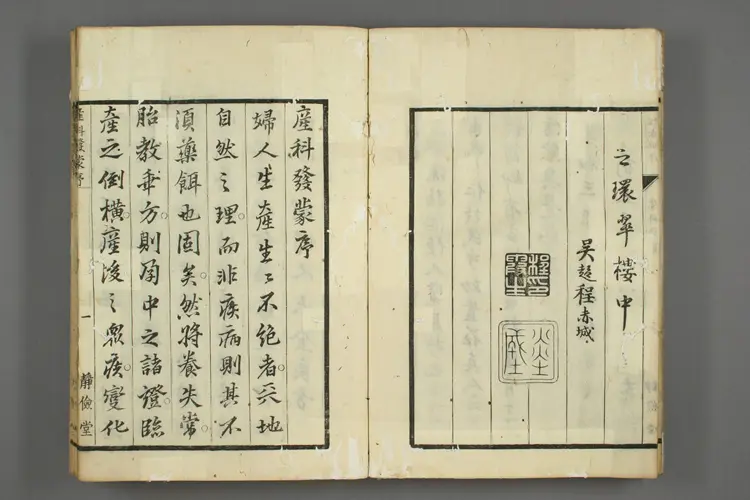 之環翠樓中
吴趍程赤城
産科發蒙序
婦人生産生〻不絶者天地
自然之理而非疾病則其不
須藥餌也固矣然将養失常
胎教乖方則孕中之諸證臨
産之倒橫産後之衆疾變化
産科發蒙序
一
靜儉堂